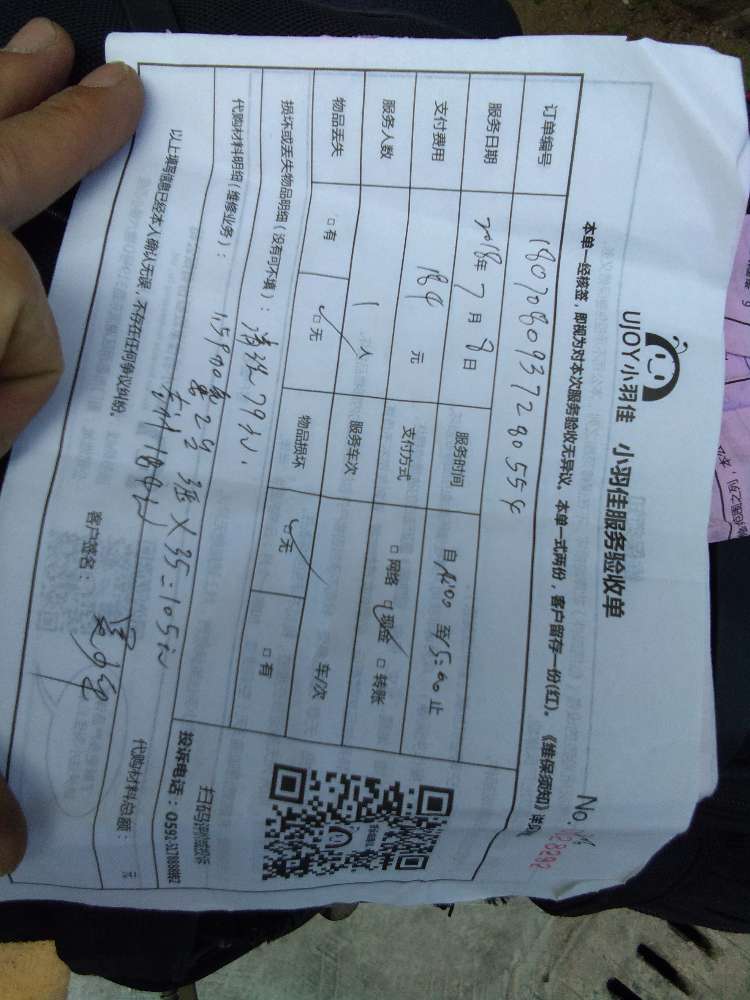 UJOY小羽佳 小羽佳服务验收单
No.
28282
本单一经核签，即视为对本次服务验收无异议。本单一式两份，客户留存一份(红)。《维保须知》
订单编号
服务日期 2018年7月8日 服务时间 自 14:00 至 15:00 止
支付费用 184 元 支付方式 □网络 ☑现金 □转账
服务人数 1 人 服务车次 车/次
物品丢失 □有 ☑无 物品损坏 ☑无 □有
损坏或丢失物品明细(没有可不填)： 清洗79元.
代购材料明细(维修业务)： 1.5P 加氟 ×35=105元
184元
代购材料总额： 元
以上填写信息已经本人确认无误，不存在任何争议纠纷。 客户签名：
扫码
投诉电话：0592-